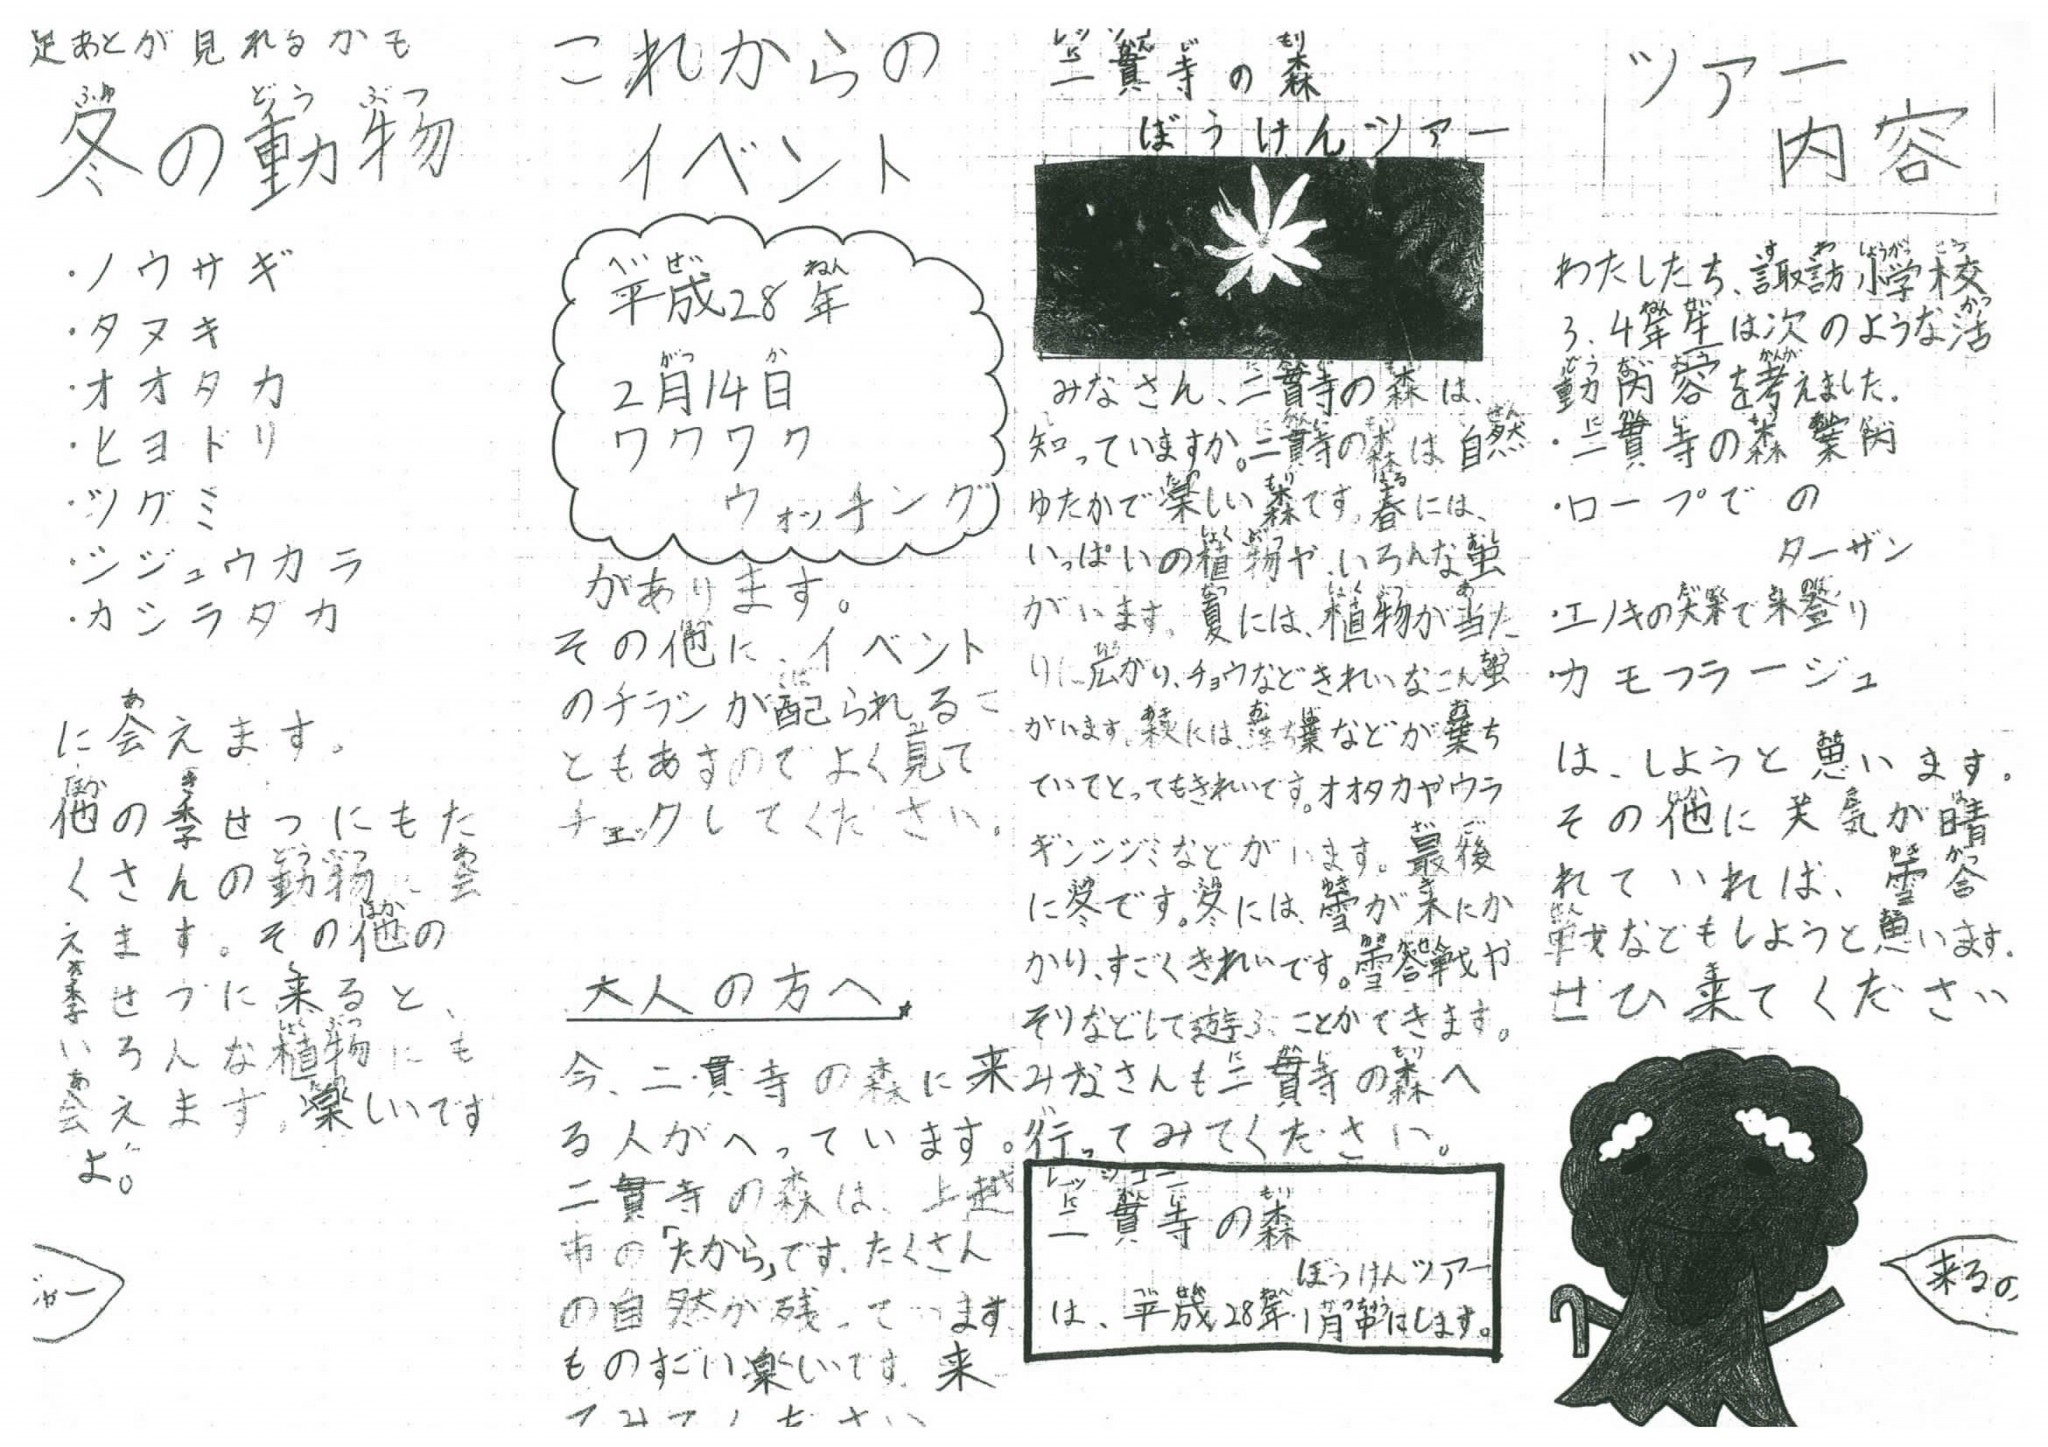 足あとが見れるかも
冬の動物
・ノウサギ
・タヌキ
・オオタカ
・ヒヨドリ
・ツグミ
・シジュウカラ
・カシラダカ
に会えます。
他の季せつにもた
くさんの動物に会
えます。その他の
季せつに来ると、
いろんな植物にも
会えます。楽しいです
よ。
これからの
イベント
平成28年
2月14日
ワクワク
ウォッチング
があります。
その他に、イベント
のチラシが配られるこ
ともあすのでよく見て
チェックしてください。
大人の方へ
今、二貫寺の森に来
る人がへっています。
二貫寺の森は、上越
市の「たから」です。たくさん
の自然が残って います
ものすごい楽しいです。来
てみてください
二貫寺の森
ぼうけんツアー
みなさん、二貫寺の森は、
知っていますか。二貫寺の森は自然
ゆたかで楽しい森です。春には、
いっぱいの植物や、いろんな虫
がいます。夏には、植物が当た
りに広がり、チョウなどきれいなこん虫
がいます。秋には、落ち葉などが葉ち
ていてとってもきれいです。オオタカやウラ
ギンシジミなどがいます。最後
に冬です。冬には、雪が木にか
かり、すごくきれいです。雪合戦や
そりなどして遊ぶことができます。
みなさんも二貫寺の森へ
行ってみてください。
二貫寺の森
ぼうけんツアー
は、平成28年1月中にします。
ツアー
内容
わたしたち、諏訪小学校
3、4年生は次のような活
動内容を考えました。
・二貫寺の森案内
・ロープでの
ターザン
・エノキの大木で木登り
・カモフラージュ
は、しようと思います。
その他に天気が晴
れていれば、雪合
戦などもしようと思います。
ぜひ来てください
来るの